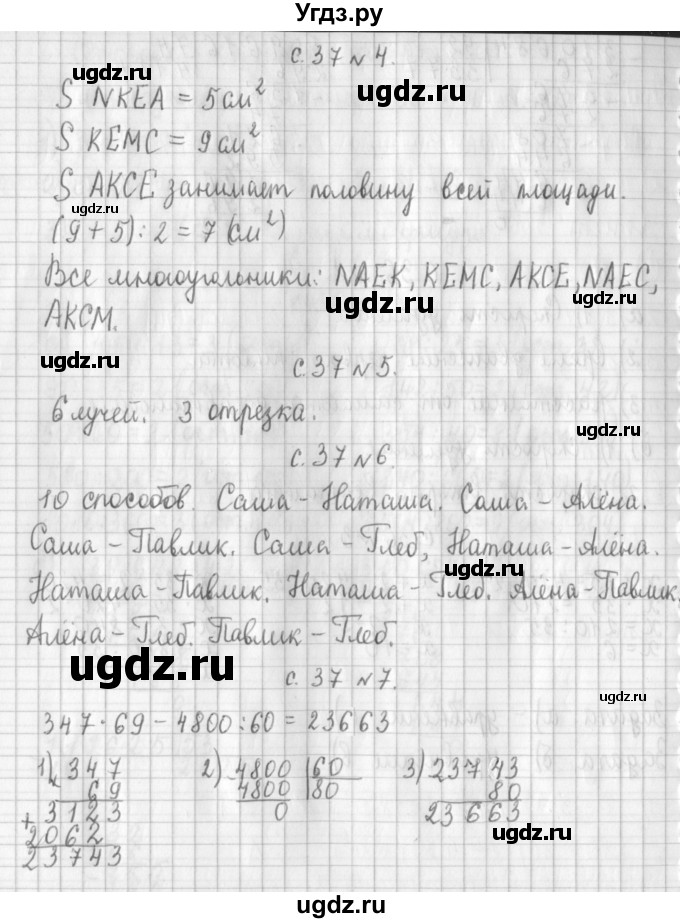 Угдз.ру
с. 37 № 4.
S NKEA = 5 см²
S KEMC = 9 см²
S AKCE занимает половину всей площади.
(9 + 5) : 2 = 7 (см²)
Все многоугольники: NAEK, KEMC, AKCE, NAEC,
AKCM.
с. 37 № 5.
6 лучей. 3 отрезка.
с. 37 № 6.
10 способов. Саша - Наташа. Саша - Алёна.
Саша - Павлик. Саша - Глеб, Наташа - Алёна.
Наташа - Павлик. Наташа - Глеб. Алёна - Павлик.
Алёна - Глеб. Павлик - Глеб.
с. 37 № 7.
347 · 69 - 4800 : 60 = 23663
1) × 347 2) - 4800 | 60 3) - 23743
69 4800 | 80 80
+ 3123 0 23663
2062
23743
ugdz.ru
ugdz.ru
ugdz.ru
ugdz.ru
ugdz.ru
ugdz.ru
ugdz.ru
ugdz.ru
ugdz.ru
ugdz.ru
ugdz.ru
ugdz.ru
ugdz.ru